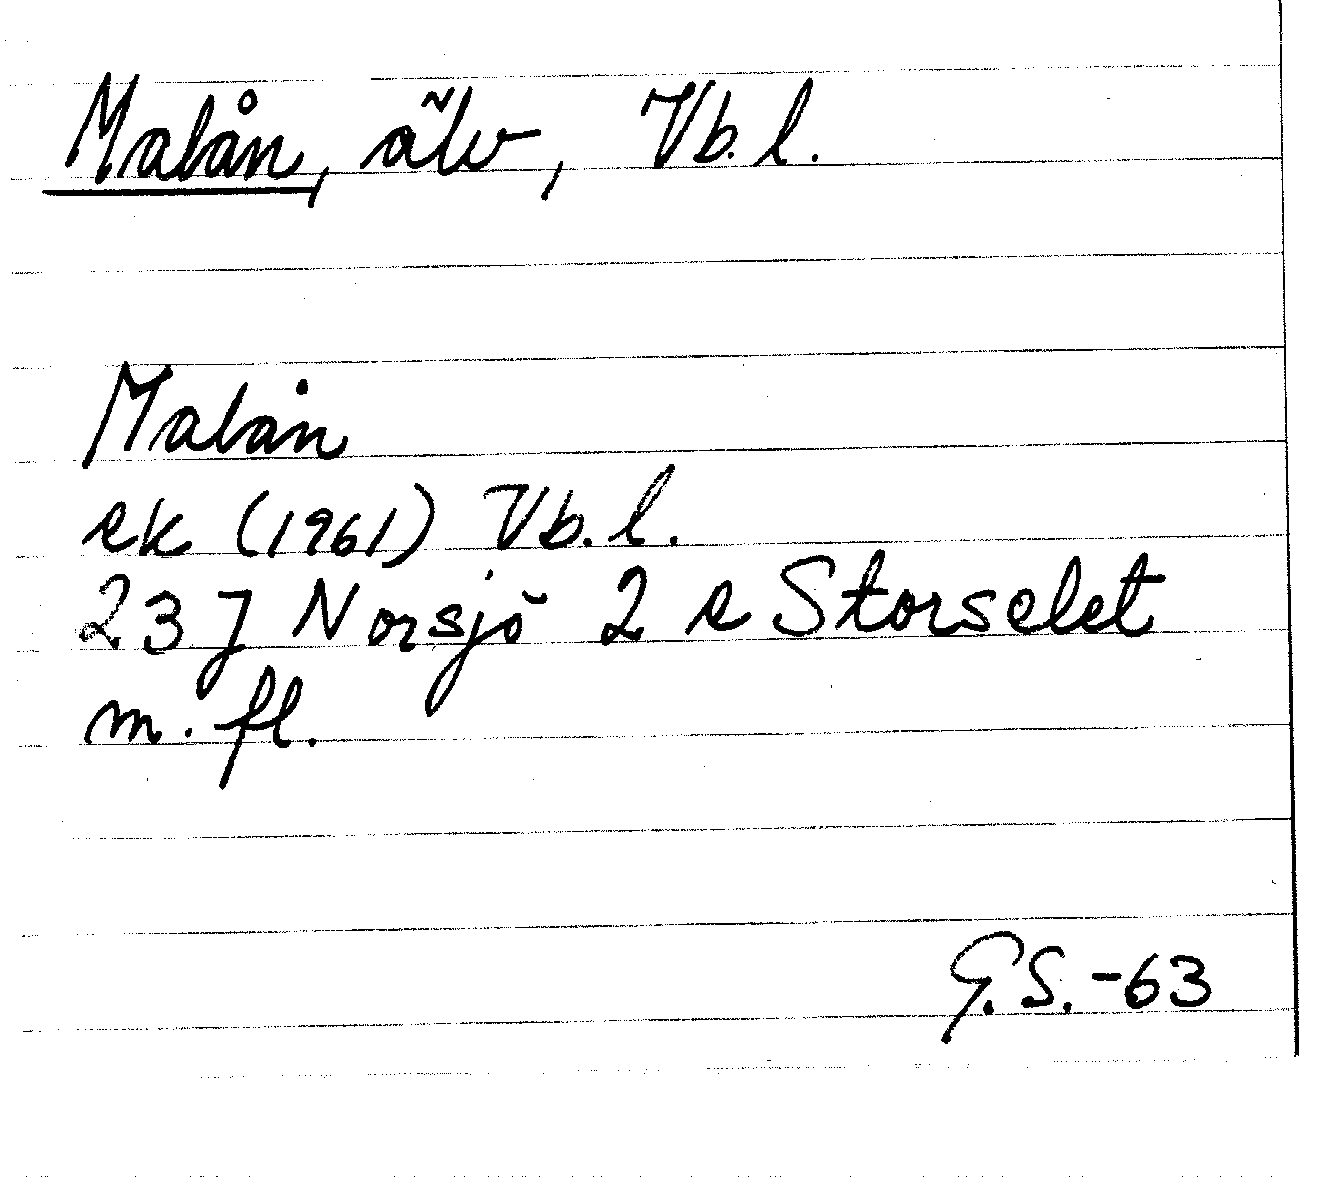 Malån, älv, Vb. l.
Malån
ek (1961) Vb. l.
23 J Norsjö 2 e Storselet
m. fl.
G.S. -63